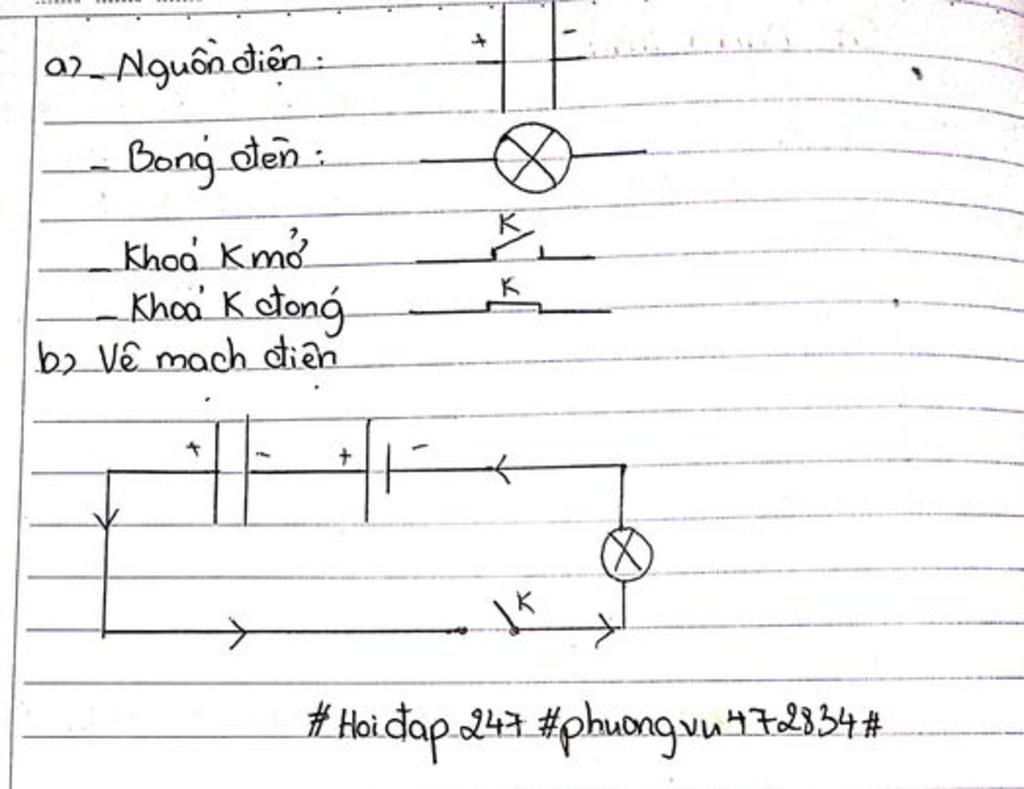 a) - Nguồn điện : + -
- Bóng đèn :
- Khoá K mở K
- Khoá K đóng K
b) Vẽ mạch điện
+ - + -
K
#Hoidap247 #phuongvu472834#